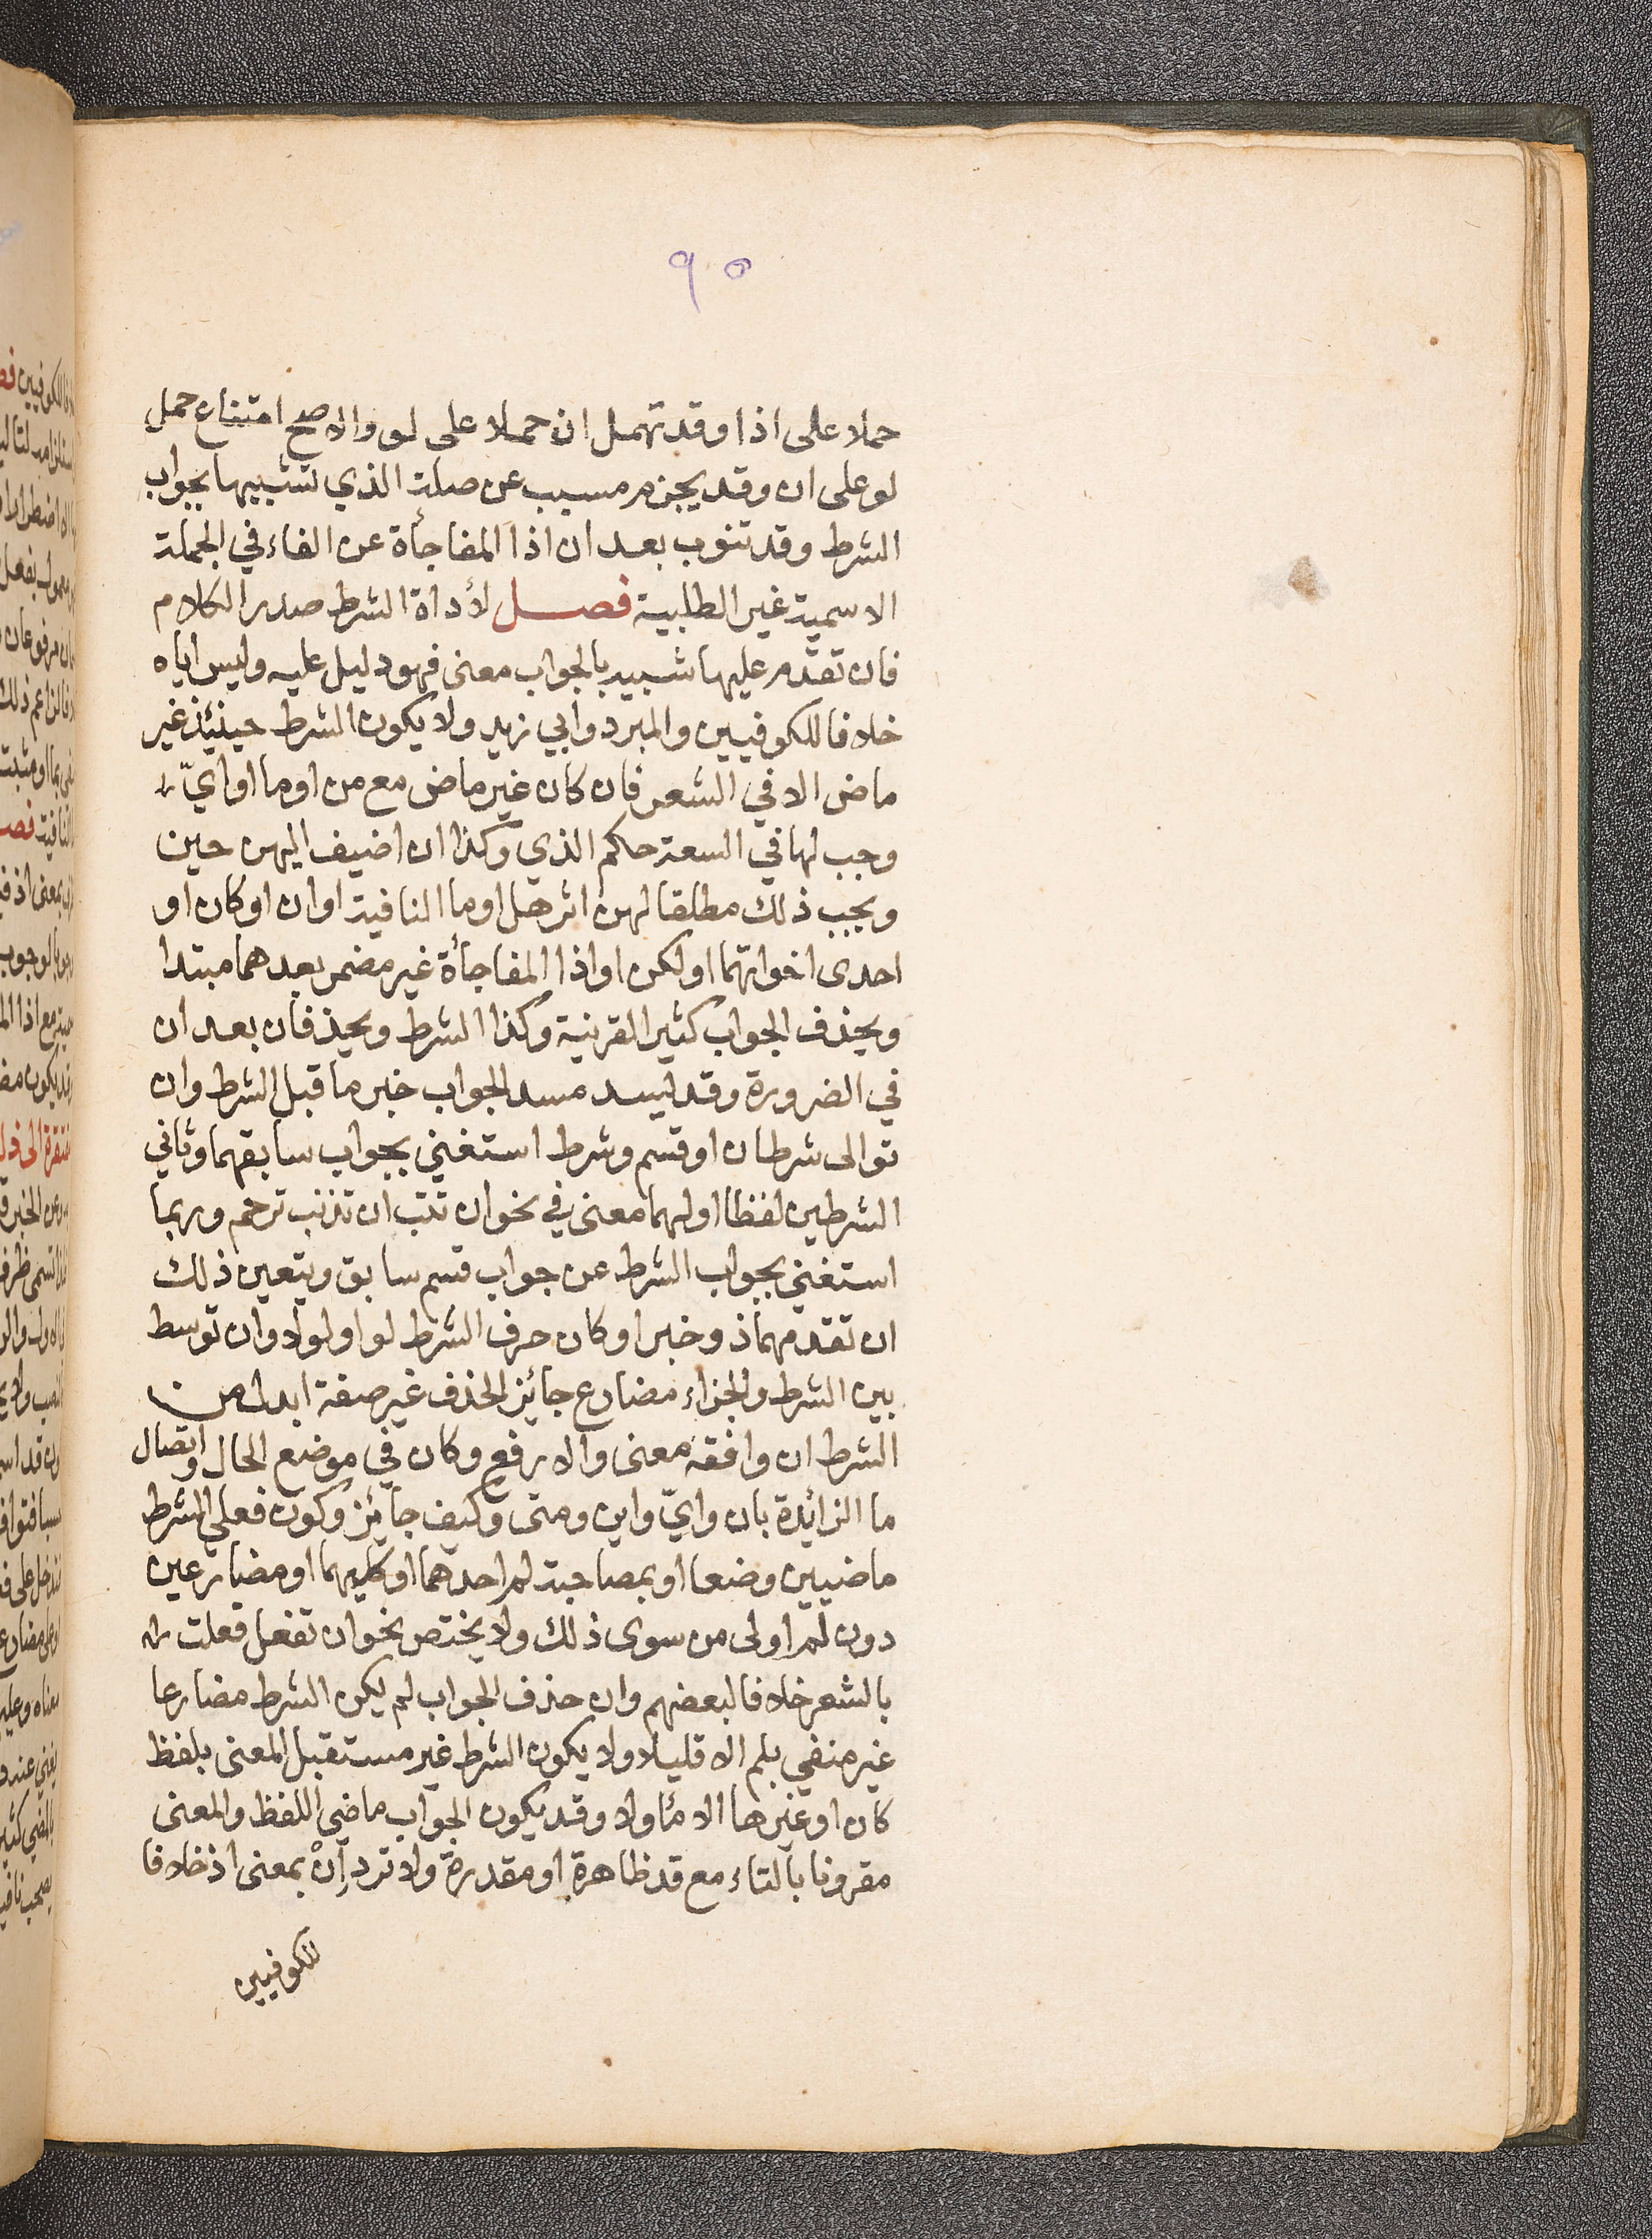 ٩٥
حملا على اذا وقد تهمل ان حملا على لو والاصح امتناع حمل
لو على ان وقد يجزم مسبب عن صلة الذي تشبيها بجواب
الشرط وقد تنوب بعد ان اذا المفاجأة عن الفاء في الجملة
الاسمية غير الطلبية فصل لأداة الشرط صدر الكلام
فان تقدّم عليها شبيه بالجواب معنى فهو دليل عليه وليس اياه
خلافا للكوفيين والمبرد وابي زيد ولا يكون الشرط حينئذ غير
ماض الا في الشعر فان كان غير ماض مع من او ما او ايّ
وجب لها في السعة حكم الذي وكذا ان اضيف اليهن حين
ويجب ذلك مطلقا لهن اثر هل او ما النافية او ان او كان او
احدى اخواتهما او لكن او اذا المفاجأة غير مضمر بعدهما مبتدا
ويحذف الجواب كثيرا لقرينة وكذا الشرط ويحذفان بعد ان
في الضرورة وقد يسد مسد الجواب خبر ما قبل الشرط وان
توالى شرطان او قسم وشرط استغني بجواب سابقهما وثاني
الشرطين لفظا اولهما معنى في نحو ان تتب ان تذنب ترحم وربما
استغني بجواب الشرط عن جواب قسم سابق ويتعين ذلك
ان تقدمهما ذو خبر او كان حرف الشرط لو او لولا وان توسط
بين الشرط والجزاء مضارع جائز الحذف غير صفة ابدل من
الشرط ان وافقه معنى والا رفع وكان في موضع الحال واتصال
ما الزائدة بان وايّ واين ومتى وكيف جائز وكون فعلي الشرط
ماضيين وضعا او بمصاحبة لم احدهما او كليهما او مضارعين
دون لم اولى من سوى ذلك ولا يختص نحو ان تفعل فعلت
بالشعر خلافا لبعضهم وان حذف الجواب لم يكن الشرط مضارعا
غير منفي بلم الا قليلا ولا يكون الشرط غير مستقبل المعنى بلفظ
كان او غيرها الا مأولا وقد يكون الجواب ماضي اللفظ والمعنى
مقرونا بالتاء مع قد ظاهرة او مقدرة ولا ترد إنْ بمعنى اذ خلافا
للكوفيين